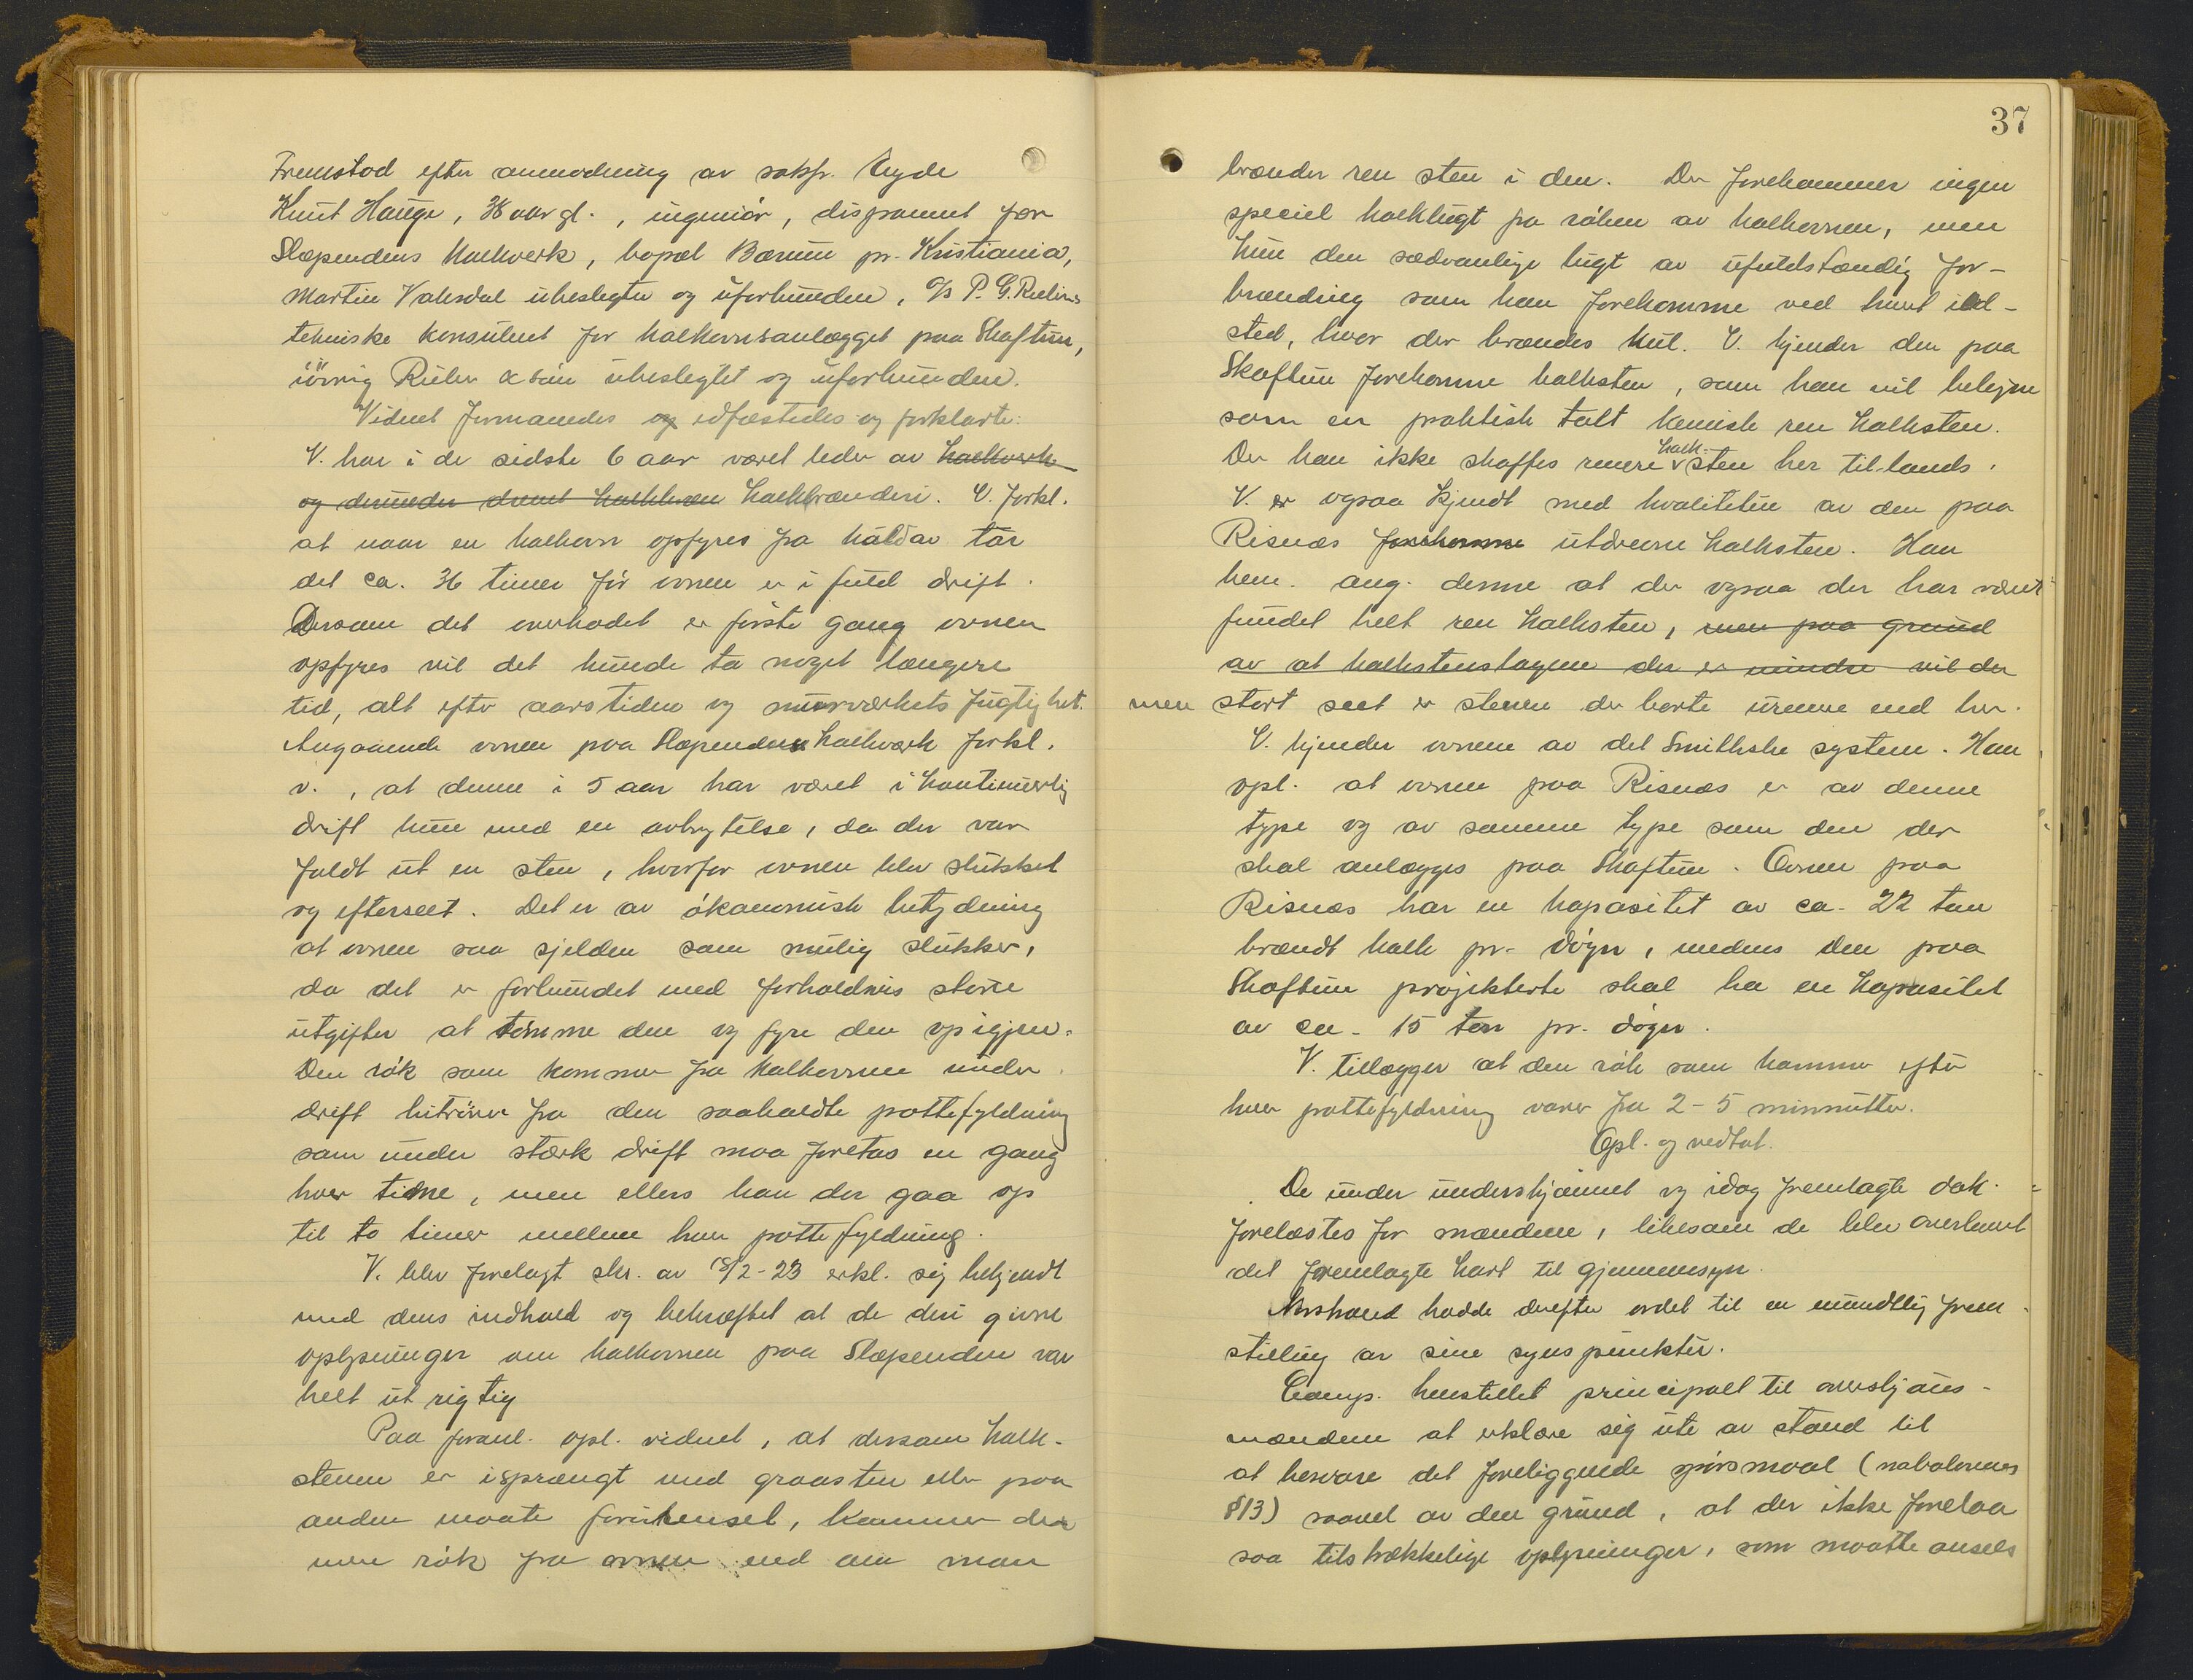 Fremstod efter anmodning av saksf. Eyde
Knut Hauge, 36 aar gl., ingeniør, disponent for
Slæpendens Kalkverk, bopæl Bærum pr. Kristiania,
Martin Vaksdal ubeslegtet og uforbunden, A/s P. G. Riebers
tekniske konsulent for kalkovnsanlægget paa Skaftun,
iövrig Rieber & sön ubeslegtet og uforbunden.
Vidnet formanedes og edfæstedes og forklarte:
V. har i de sidste 6 aar været leder av kalkverk
og derunder drevet kalkbræn kalkbrænderi. V. forkl.
at naar en kalkovn opfyres fra kald av tar
det ca. 36 timer för ovnen er i fuld drift.
Dersom det overhodet er förste gang ovnen
opfyres vil det kunde ta noget længere
tid, alt efter aarstiden og murverkets fugtighet.
Angaaende ovnen paa Slæpendens kalkværk forkl.
v., at denne i 5 aar har været i kontinuerlig
drift kun med en avbrytelse, da der var
faldt ut en sten, hvorfor ovnen blev slukket
og efterseet. Det er av ökonomisk betydning
at ovnen saa sjelden som mulig slukkes,
da det er forbundet med forholdsvis store
utgifter at tömme den og fyre den op igjen.
Den rök som kommer fra kalkovnen under
drift hitrörer fra den saakaldte pottefyldning
som under stærk drift maa foretas en gang
hver time, men ellers kan der gaa op
til to timer mellem hver pottefyldning.
V. blev forelagt skr. av 18/2-23 erkl. sig bekjendt
med dens indhold og bekræftet at de deri givne
oplysninger om kalkovnen paa Slæpenden var
helt ut rigtig
Paa foranl. opl. vidnet, at dersom kalk-
stenen er isprængt med graasten eller paa
anden maate forurenset, kommer der
mer rök fra ovnen end om man
37
brænder ren sten i den. Der forekommer ingen
speciel kalklugt fra röken av kalkovnen, men
kun den sædvanlige lugt av ufuldstændig for-
brænding som kan forekomme ved hvert ild-
sted, hvor der brændes kul. V. kjender den paa
Skaftun forekomne kalksten, som han vil betegne
som en praktisk talt kemisk ren kalksten.
Der kan ikke skaffes renere kalk-sten her til-lands.
V. er ogsaa kjendt med kvaliteten av den paa
Risnæs forekomne utdrevne kalksten. Han
bem. ang. denne at der ogsaa der har været
fundet helt ren kalksten, men paa grund
av at kalkstenslagene der er mindre vil der
men stort seet er stenen der borte urenere end her.
V. kjender ovnene av det Smithske system. Han
opl. at ovnen paa Risnæs er av denne
type og av samme type som den der
skal anlægges paa Skaftun. Ovnen paa
Risnæs har en kapasitet av ca. 22 ton
brændt kalk pr. dögn, medens den paa
Skaftun projekterte skal ha en kapasitet
av ca. 15 ton pr. dögn.
V. tillægger at den rök som kommer efter
hver pottefyldning varer fra 2-5 minnutter.
Opl. og vedtat.
De under underskjönnet og idag fremlagte dok.
forelæstes for mændene, likesom de blev overlevert
det fremlagte kart til gjennemsyn.
hadde derefter ordet til en mundtlig frem
stilling av sine synspunkter.
Camp. henstillet principalt til overskjöns-
mændene at erklære sig ute av stand til
at besvare det foreliggende spörsmaal (nabolovens
§13) saavel av den grund, at der ikke forelaa
saa tilstrækkelige oplysninger, som maatte ansees